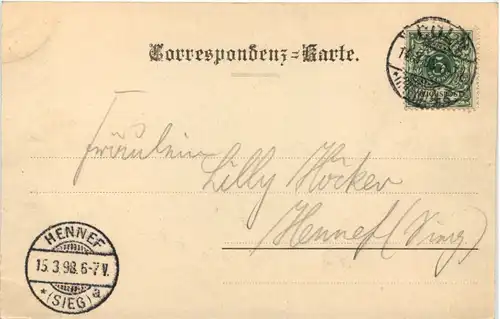 Correspondenz-Karte.
CÖLN
5
Fräulein
Lilly Höcker
Hennef (Sieg)
HENNEF
15.3.98.6-7V.
* (SIEG) a